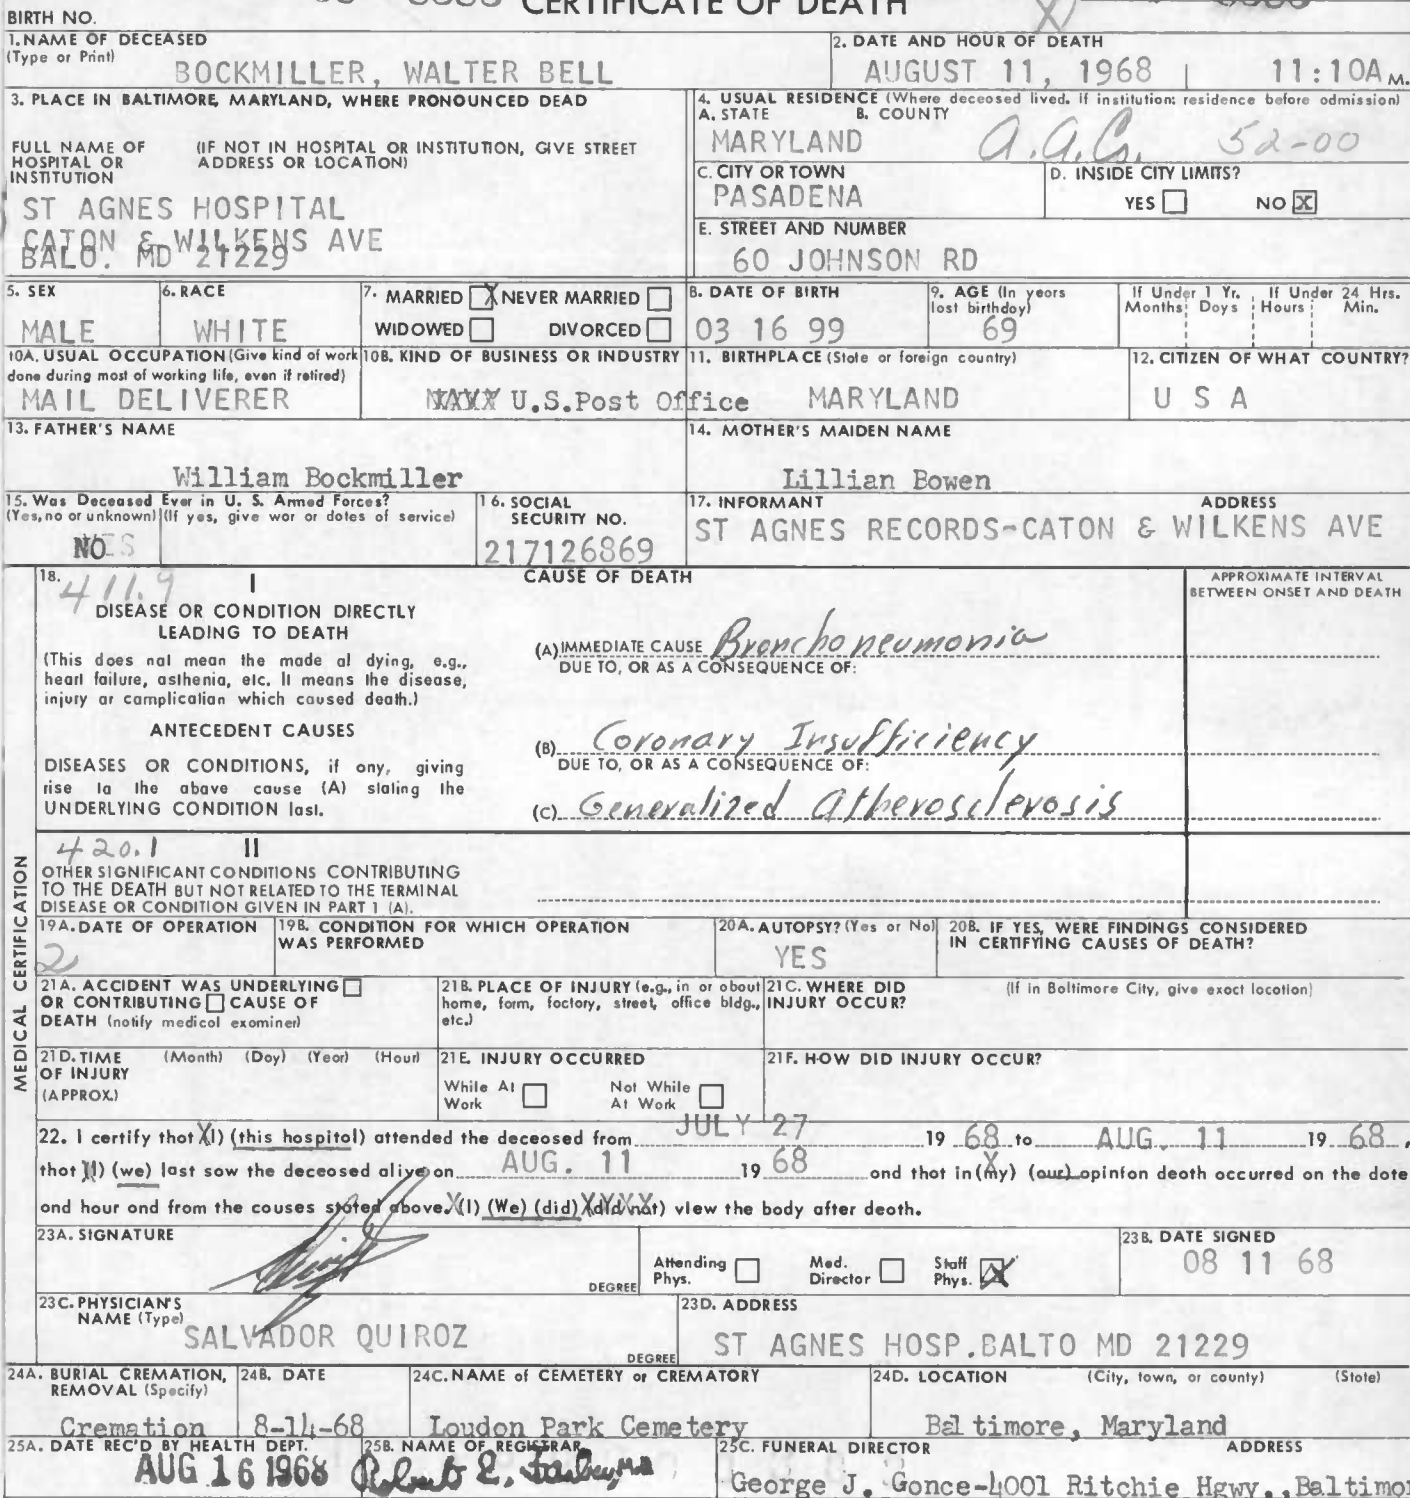 CERTIFICATE OF DEATH
BIRTH NO.
1. NAME OF DECEASED
(Type or Print)
BOCKMILLER, WALTER BELL
2. DATE AND HOUR OF DEATH
AUGUST 11, 1968 | 11:10A M.
3. PLACE IN BALTIMORE, MARYLAND, WHERE PRONOUNCED DEAD
FULL NAME OF HOSPITAL OR INSTITUTION
(IF NOT IN HOSPITAL OR INSTITUTION, GIVE STREET ADDRESS OR LOCATION)
ST AGNES HOSPITAL
CATON & WILKENS AVE
BALO. MD 21229
4. USUAL RESIDENCE (Where deceosed lived. If institution: residence before odmission)
A. STATE B. COUNTY
MARYLAND A.A.Co. 52-00
C. CITY OR TOWN
PASADENA
D. INSIDE CITY LIMITS?
YES NO X
E. STREET AND NUMBER
60 JOHNSON RD
5. SEX
MALE
6. RACE
WHITE
7. MARRIED X NEVER MARRIED
WIDOWED DIVORCED
8. DATE OF BIRTH
03 16 99
9. AGE (In years lost birthdoy)
69
If Under 1 Yr. If Under 24 Hrs.
Months Doys Hours Min.
10A. USUAL OCCUPATION (Give kind of work done during most of working life, even if retired)
MAIL DELIVERER
10B. KIND OF BUSINESS OR INDUSTRY
U.S.Post Office
11. BIRTHPLACE (Stote or foreign country)
MARYLAND
12. CITIZEN OF WHAT COUNTRY?
U S A
13. FATHER'S NAME
William Bockmiller
14. MOTHER'S MAIDEN NAME
Lillian Bowen
15. Was Deceased Ever in U. S. Armed Forces?
(Yes, no or unknown) (If yes, give wor or dotes of service)
NO
16. SOCIAL SECURITY NO.
217126869
17. INFORMANT ADDRESS
ST AGNES RECORDS-CATON & WILKENS AVE
MEDICAL CERTIFICATION
18. 411.9 I
DISEASE OR CONDITION DIRECTLY
LEADING TO DEATH
(This does nal mean the made al dying, e.g.,
hearl failure, aslhenia, elc. Il means lhe disease,
injury ar camplicalian which caused death.)
ANTECEDENT CAUSES
DISEASES OR CONDITIONS, if ony, giving
rise la lhe abave cause (A) slaling lhe
UNDERLYING CONDITION lasl.
CAUSE OF DEATH
(A) IMMEDIATE CAUSE Bronchopneumonia
DUE TO, OR AS A CONSEQUENCE OF:
(B) Coronary Insufficiency
DUE TO, OR AS A CONSEQUENCE OF:
(C) Generalized Atherosclerosis
APPROXIMATE INTERVAL
BETWEEN ONSET AND DEATH
420.1 II
OTHER SIGNIFICANT CONDITIONS CONTRIBUTING
TO THE DEATH BUT NOT RELATED TO THE TERMINAL
DISEASE OR CONDITION GIVEN IN PART 1 (A).
19A. DATE OF OPERATION
2
19B. CONDITION FOR WHICH OPERATION WAS PERFORMED
20A. AUTOPSY? (Yes or No)
YES
20B. IF YES, WERE FINDINGS CONSIDERED IN CERTIFYING CAUSES OF DEATH?
21A. ACCIDENT WAS UNDERLYING
OR CONTRIBUTING CAUSE OF
DEATH (notify medicol exominer)
21B. PLACE OF INJURY (e.g., in or obout home, form, foctory, street, office bldg., etc.)
21C. WHERE DID INJURY OCCUR?
(If in Boltimore City, give exoct locotion)
21D. TIME OF INJURY (APPROX.)
(Month) (Doy) (Yeor) (Hour)
21E. INJURY OCCURRED
While At Work Not While At Work
21F. HOW DID INJURY OCCUR?
22. I certify thot (I) (this hospitol) attended the deceosed from JULY 27 19 68 to AUG. 11 19 68,
thot (I) (we) last sow the deceosed olive on AUG. 11 19 68 ond thot in (my) (our) opinion death occurred on the dote
ond hour ond from the couses stoted obove. (I) (We) (did) (did not) view the body ofter deoth.
23A. SIGNATURE
DEGREE
Attending Phys. Med. Director Stoff Phys. X
23B. DATE SIGNED
08 11 68
23C. PHYSICIAN'S NAME (Type)
SALVADOR QUIROZ
DEGREE
23D. ADDRESS
ST AGNES HOSP.BALTO MD 21229
24A. BURIAL CREMATION, REMOVAL (Specify)
Cremation
24B. DATE
8-14-68
24C. NAME of CEMETERY or CREMATORY
Loudon Park Cemetery
24D. LOCATION (City, town, or county) (Stote)
Baltimore, Maryland
25A. DATE REC'D BY HEALTH DEPT.
AUG 16 1968
25B. NAME OF REGISTRAR
Robert E. Farber, M.D.
25C. FUNERAL DIRECTOR ADDRESS
George J. Gonce-4001 Ritchie Hgwy., Baltimor